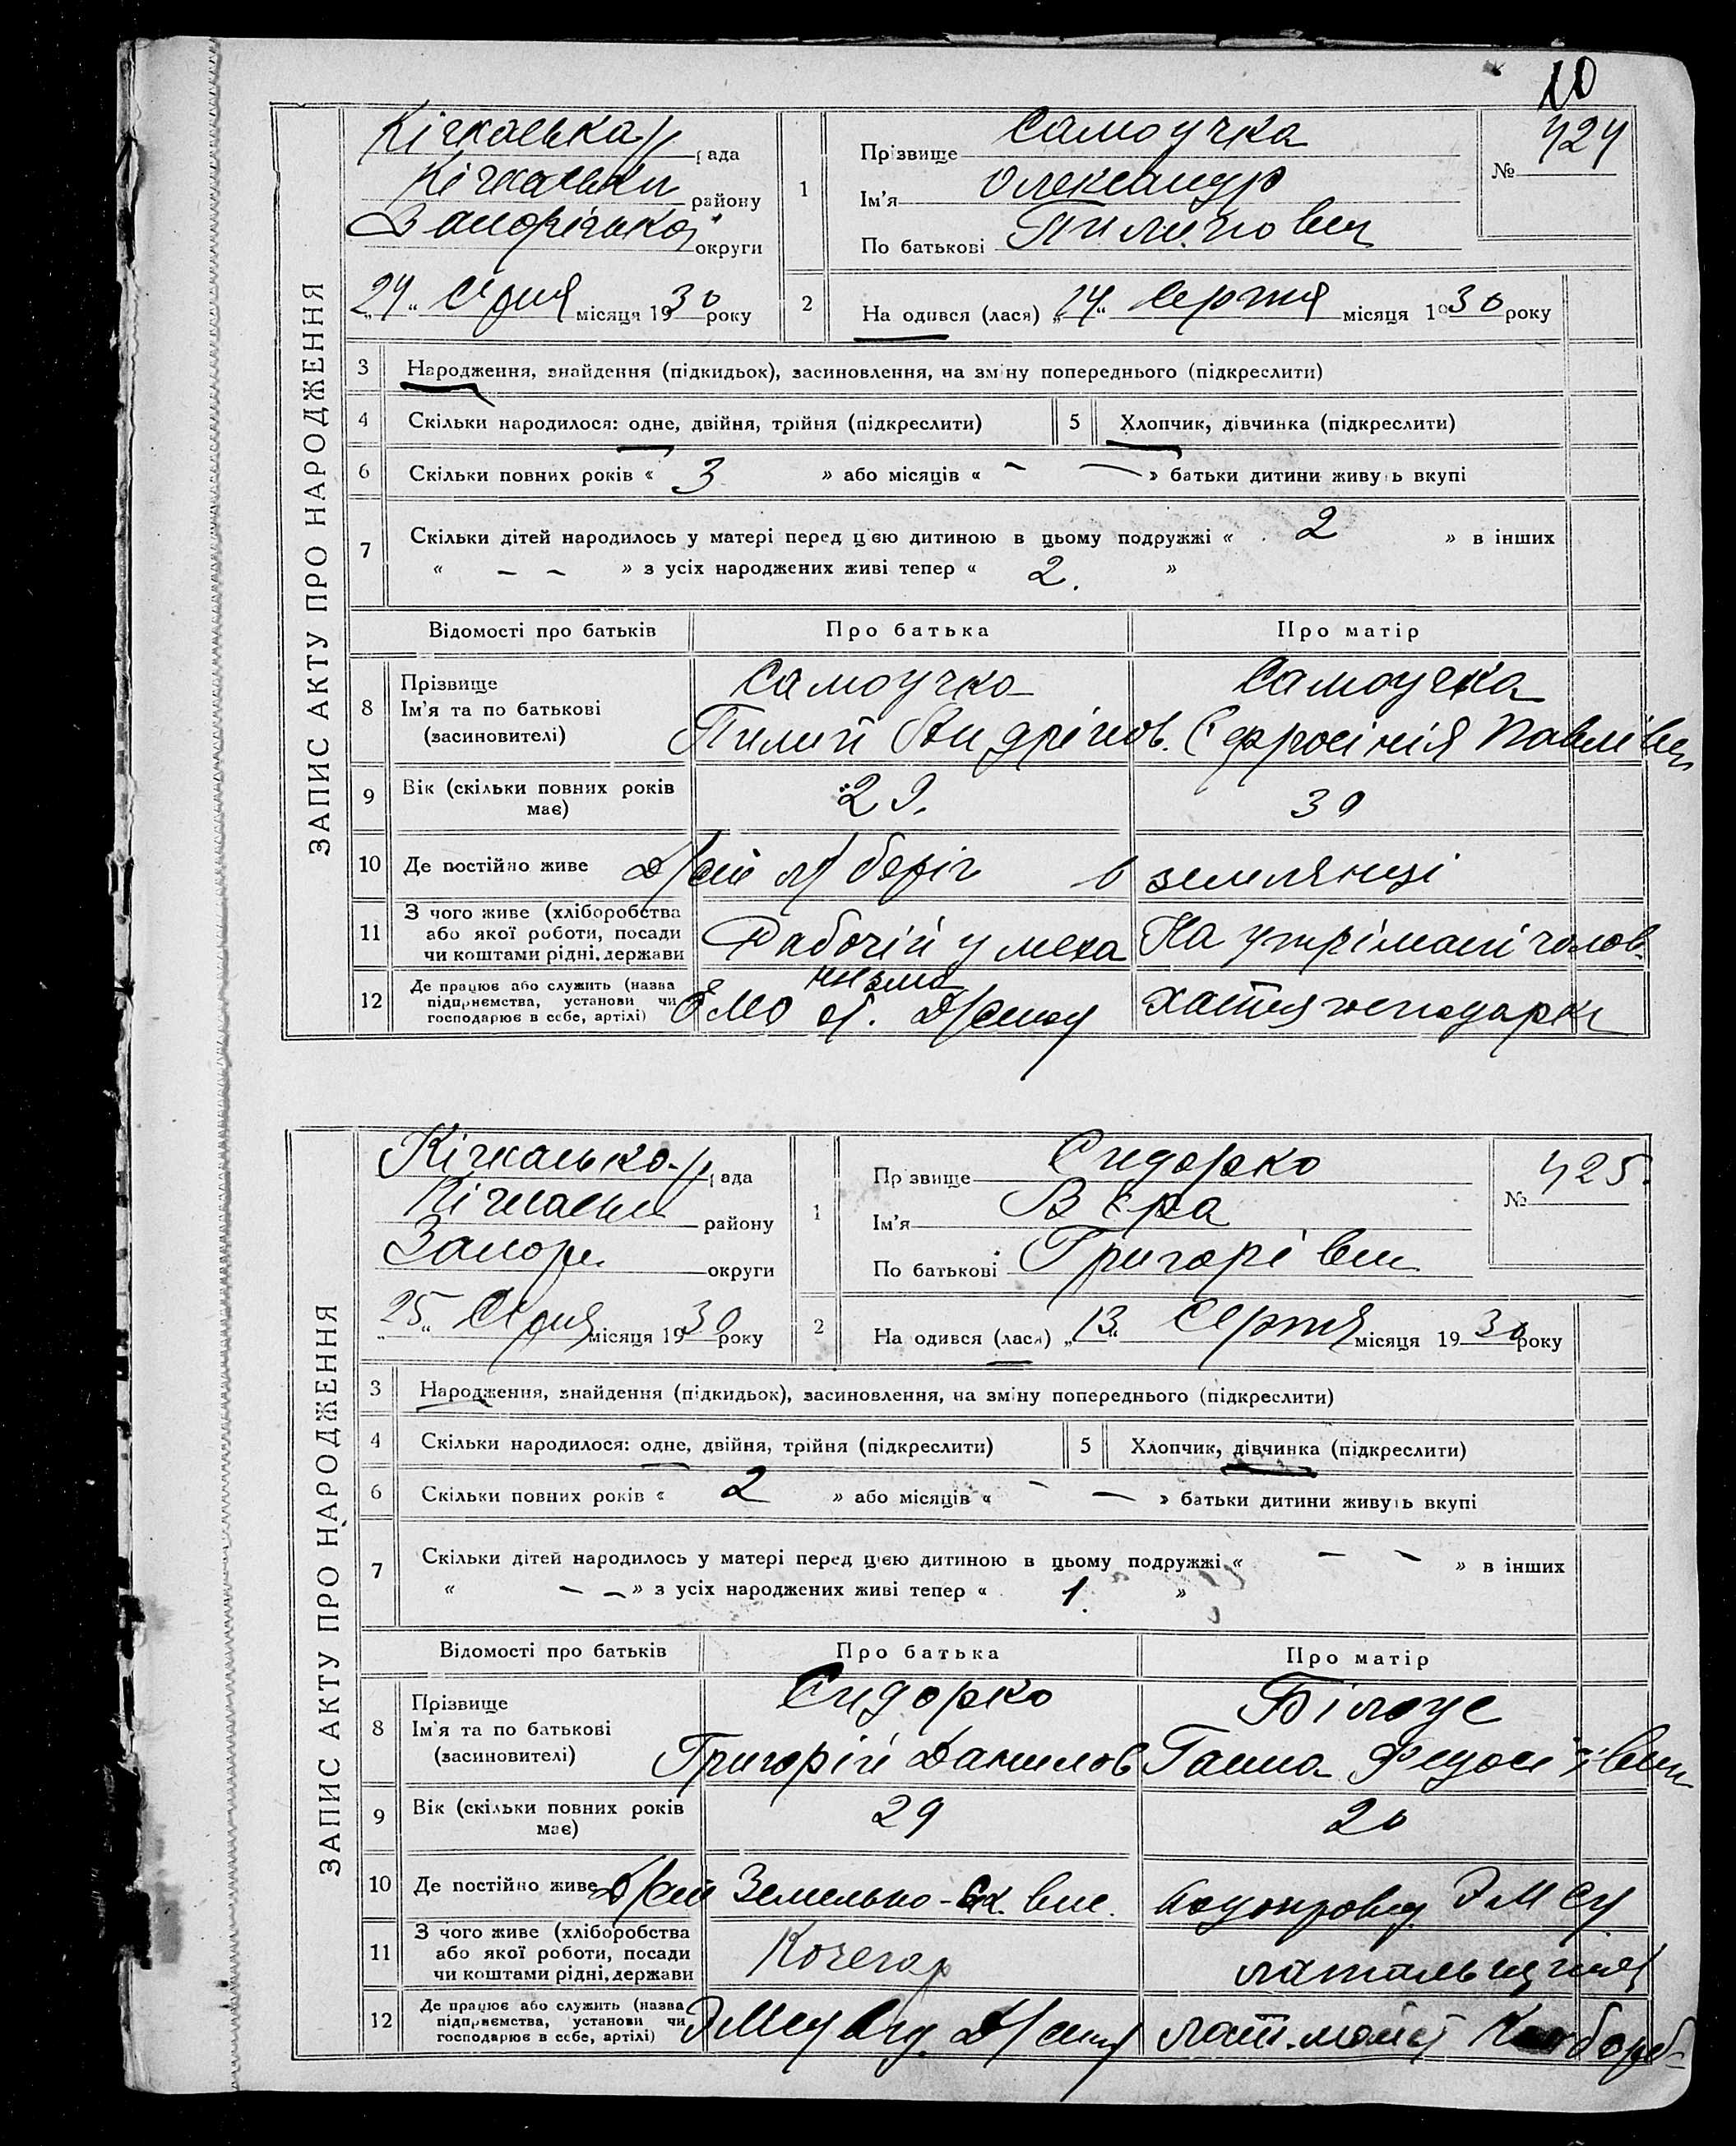 10
ЗАПИС АКТУ ПРО НАРОДЖЕННЯ
Кічкаська рада
Кічкаськ району
Запорізької округи
„24“ Сідня місяця 1930 року
1 Прізвище Самоучка
Ім'я Олександр
По батькові Пилипович
№ 424
2 На одився (лася) „14“ Серпня місяця 1930 року
3 Народження, знайдення (підкидьок), засиновлення, на зміну попереднього (підкреслити)
4 Скільки народилося: одне, двійня, трійня (підкреслити) 5 Хлопчик, дівчинка (підкреслити)
6 Скільки повних років « 3 » або місяців « — — » батьки дитини живуть вкупі
7 Скільки дітей народилось у матері перед цією дитиною в цьому подружжі « 2 » в інших
« — — » з усіх народжених живі тепер « 2. »
Відомості про батьків Про батька Про матір
8 Прізвище Самоучка Самоучка
Ім'я та по батькові Пилип Андрійов. Єфросинія Павлівн
(засиновителі)
9 Вік (скільки повних років має) 29. 30
10 Де постійно живе беріг в землянці
11 З чого живе (хліборобства або якої роботи, посади чи коштами рідні, держави Рабочій у механизма На утрімані чолов.
12 Де працює або служить (назва підприємства, установи чи господарює в себе, артілі) хатня господарк
ЗАПИС АКТУ ПРО НАРОДЖЕННЯ
Кічкасько рада
Кічкаськ району
Запоріж округи
„25“ Сідня місяця 1930 року
1 Пр звище Сидорко
Ім'я Вєра
По батькові Григорівн
№ 425.
2 На одився (лася) „13“ Серпня місяця 1930 року
3 Народження, знайдення (підкидьок), засиновлення, на зміну попереднього (підкреслити)
4 Скільки народилося: одне, двійня, трійня (підкреслити) 5 Хлопчик, дівчинка (підкреслити)
6 Скільки повних років « 2 » або місяців « — — » батьки дитини живуть вкупі
7 Скільки дітей народилось у матері перед цією дитиною в цьому подружжі « — — » в інших
« — — » з усіх народжених живі тепер « 1. »
Відомості про батьків Про батька Про матір
8 Прізвище Сидорко Білоус
Ім'я та по батькові Григорій Данилов Ганна Федосіївн
(засиновителі)
9 Вік (скільки повних років має) 29 20
10 Де постійно живе Земельно-Ск.
11 З чого живе (хліборобства або якої роботи, посади чи коштами рідні, держави Кочегар
12 Де працює або служить (назва підприємства, установи чи господарює в себе, артілі)